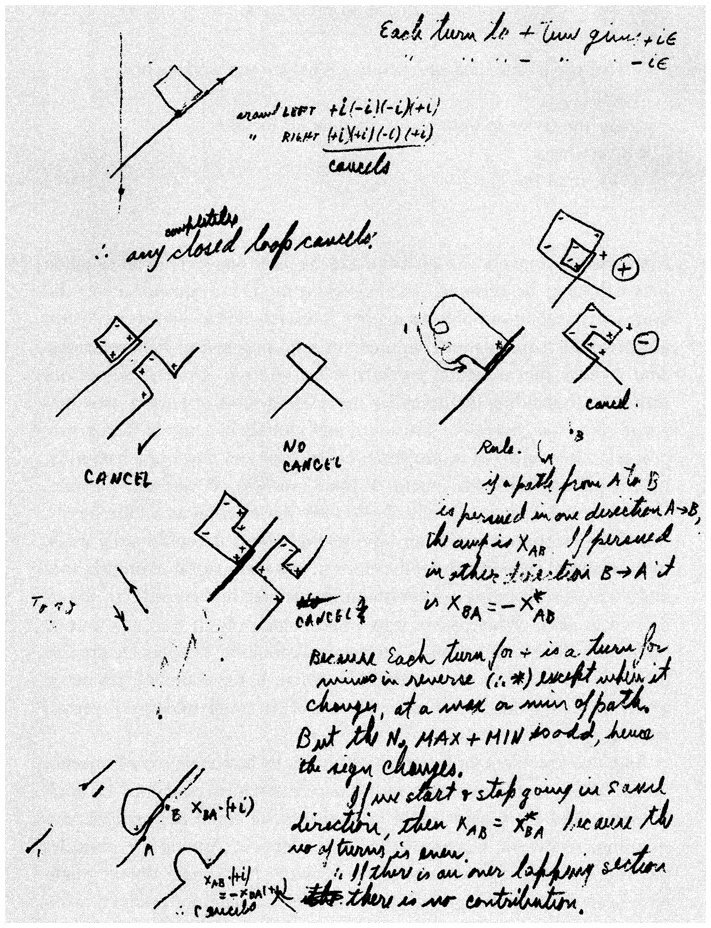 Each turn to + turn gives +iε
" " " " - " " -iε
around LEFT +i(-i)(-i)(+i)
" RIGHT (+i)(+i)(-i)(+i)
cancels
∴ any completely closed loop cancels.
+
-
cancel.
CANCEL
NO
CANCEL
CANCELS
Rule.
B
A
if a path from A to B
is persued in one direction A→B,
the amp is X_AB If persued
in other direction B→A it
is X_BA = -X*_AB
Because Each turn for + is a turn for
minus in reverse (∴ *) except when it
changes, at a max or min of path.
But the No MAX + MIN is odd, hence
the sign changes.
If we start & stop going in same
direction, then X_AB = X*_BA because the
no of turns is even.
∴ If there is an over lapping section
there is no contribution.
B X_BA·(+i)
A
X_AB·(+i)
∴ cancels